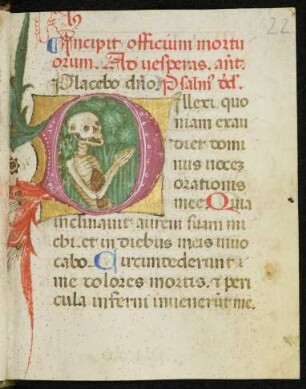 22
Incipit officium mortu
orum. Ad uesperas. ant.
Placebo dño. Psalm9 dd.
Dilexi quo
niam exau
diet domi
nus uocez
orationis
mee. Quia
inclinauit aurem suam mi
chi. et in diebus meis inuo
cabo. Circumdederunt
me dolores mortis. et peri
cula inferni inuenerũt me.